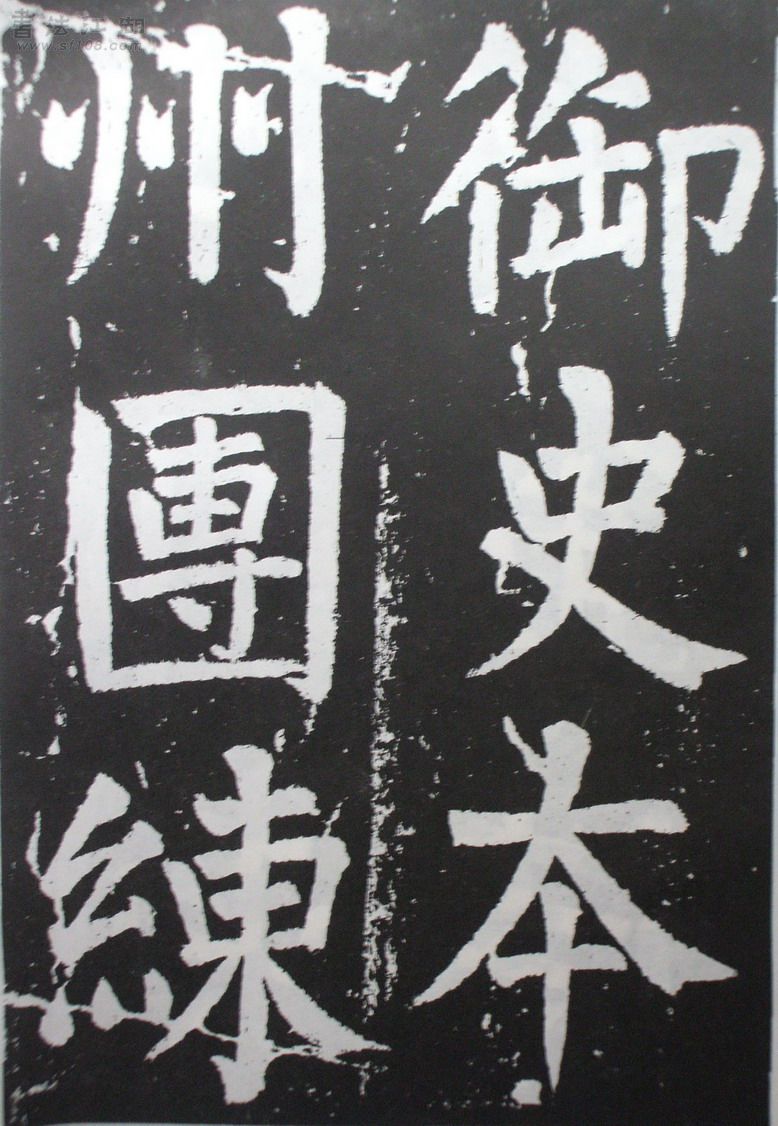 御史本
州團練
書法江湖
www.sf108.com